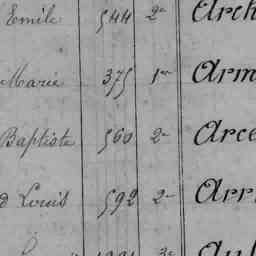 Emile 544 2e Arch
Marie 375 1er Arm
Baptiste 560 2e Arce
d Louis 592 2e Arr